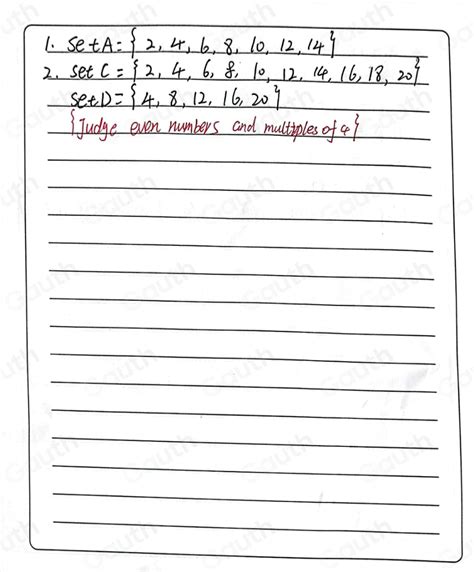 1. Set A = { 2, 4, 6, 8, 10, 12, 14 }
2. Set C = { 2, 4, 6, 8, 10, 12, 14, 16, 18, 20 }
Set D = { 4, 8, 12, 16, 20 }
{ Judge even numbers and multiples of 4 }